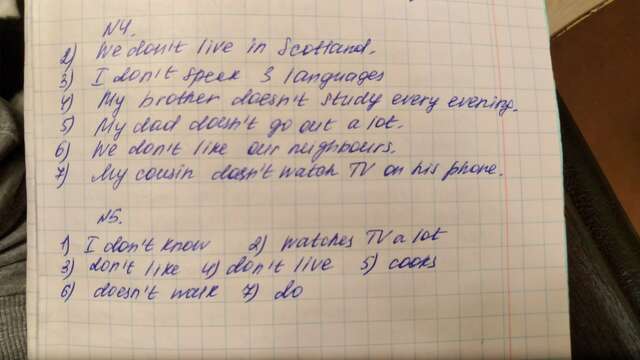 N4.
2) We don't live in Scotland.
3) I don't speek 3 languages
4) My brother doesn't study every evening.
5) My dad doesn't go out a lot.
6) We don't like our neighbours.
7) My cousin doesn't watch TV on his phone.
N5.
1) I don't know 2) watches TV a lot
3) don't like 4) don't live 5) cooks
6) doesn't work 7) do